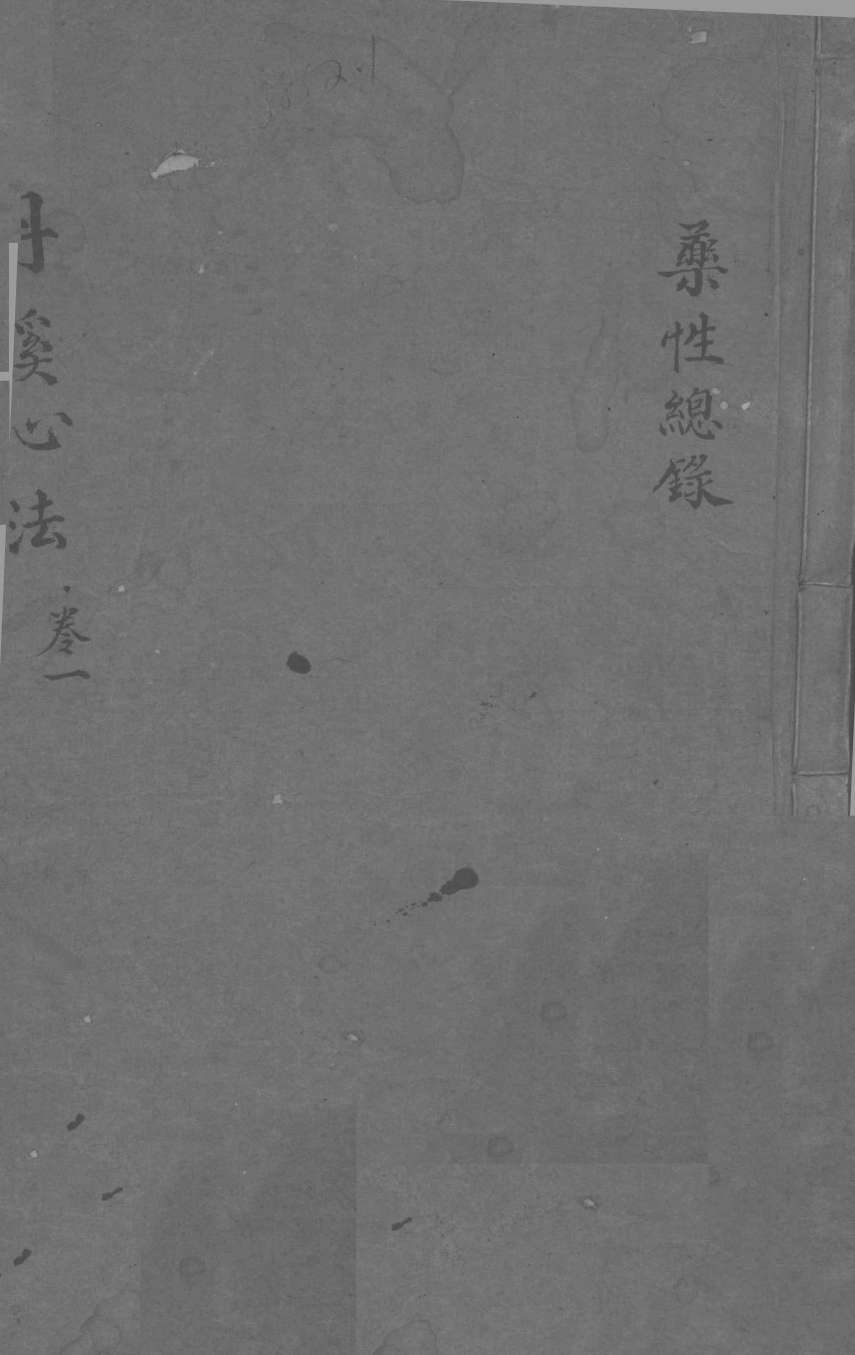 藥性總錄
丹溪心法
卷一